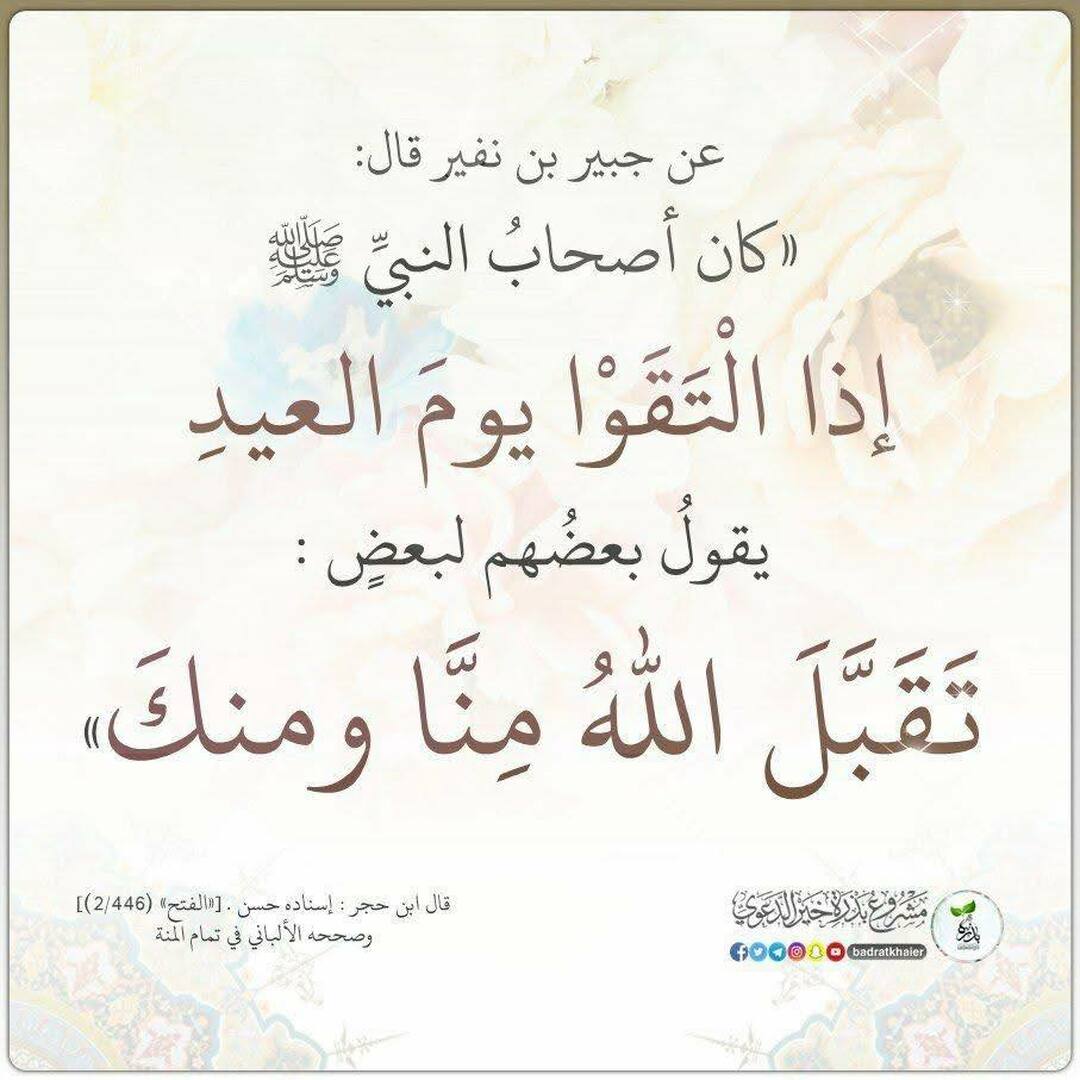 عن جبير بن نفير قال:
«كان أصحابُ النبيِّ ﷺ
إذا الْتَقَوْا يومَ العيدِ
يقولُ بعضُهم لبعضٍ :
تَقَبَّلَ اللهُ مِنَّا ومنكَ»
قال ابن حجر : إسناده حسن . [«الفتح» (2/446)]
وصححه الألباني في تمام المنة
مشروع بذرة خير الدعوي
بذرة
badratkhaier